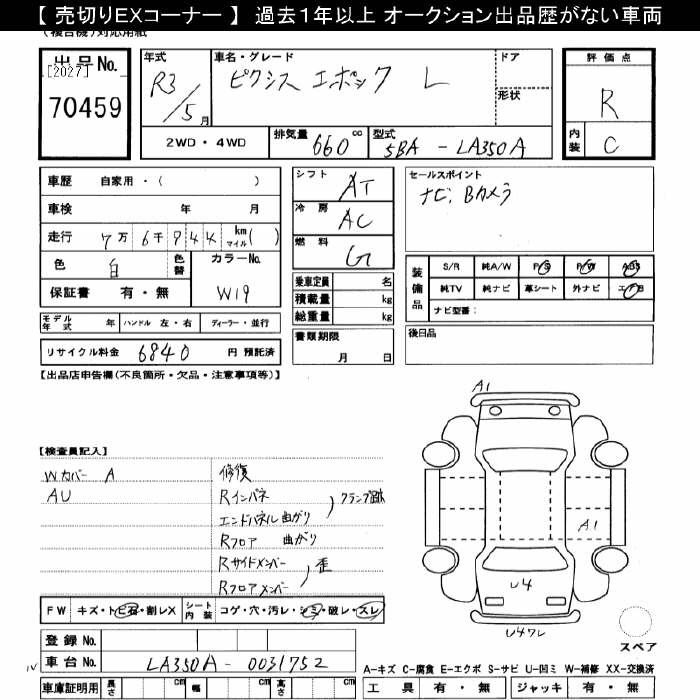 【 売切りEXコーナー 】 過去１年以上 オークション出品歴がない車両
(複合機)対応用紙
出品No.
[2027]
70459
年式
R3/5月
車名・グレード
ピクシス エポック L
ドア
形状
2WD・4WD
排気量 660 cc
型式 5BA - LA350A
評価点
R
内装 C
車歴 自家用・( )
車検 年 月
走行 7万6千944 km マイル( )
色 白 色替
カラーNo. W19
保証書 有・無
モデル年式 年 ハンドル 左・右 ディーラー・並行
リサイクル料金 6840 円 預託済
シフト AT
冷房 AC
燃料 G
乗車定員 名
積載量 kg
総重量 kg
書類期限
月 日
セールスポイント
ナビ、Bカメラ
装備品
S/R 純A/W P/S P/W ABS
純TV 純ナビ 革シート 外ナビ エアB
ナビ型番:
後日品
【出品店申告欄(不良箇所・欠品・注意事項等)】
【検査員記入】
Wカバー A
AU
修復
Rインパネ
エンドパネル 曲がり
クランプ跡
Rフロア 曲がり
Rサイドメンバー
Rフロアメンバー
歪
FW キズ・トビ石・割レX シート内装 コゲ・穴・汚レ・シミ・破レ・スレ
登録No.
車台No. LA350A - 0031752
車庫証明用 長さ cm 幅 cm 高さ cm
A1
A1
U4
U4ワレ
スペア
A-キズ C-腐食 E-エクボ S-サビ U-凹ミ W-補修 XX-交換済
工具 有・無 ジャッキ 有・無